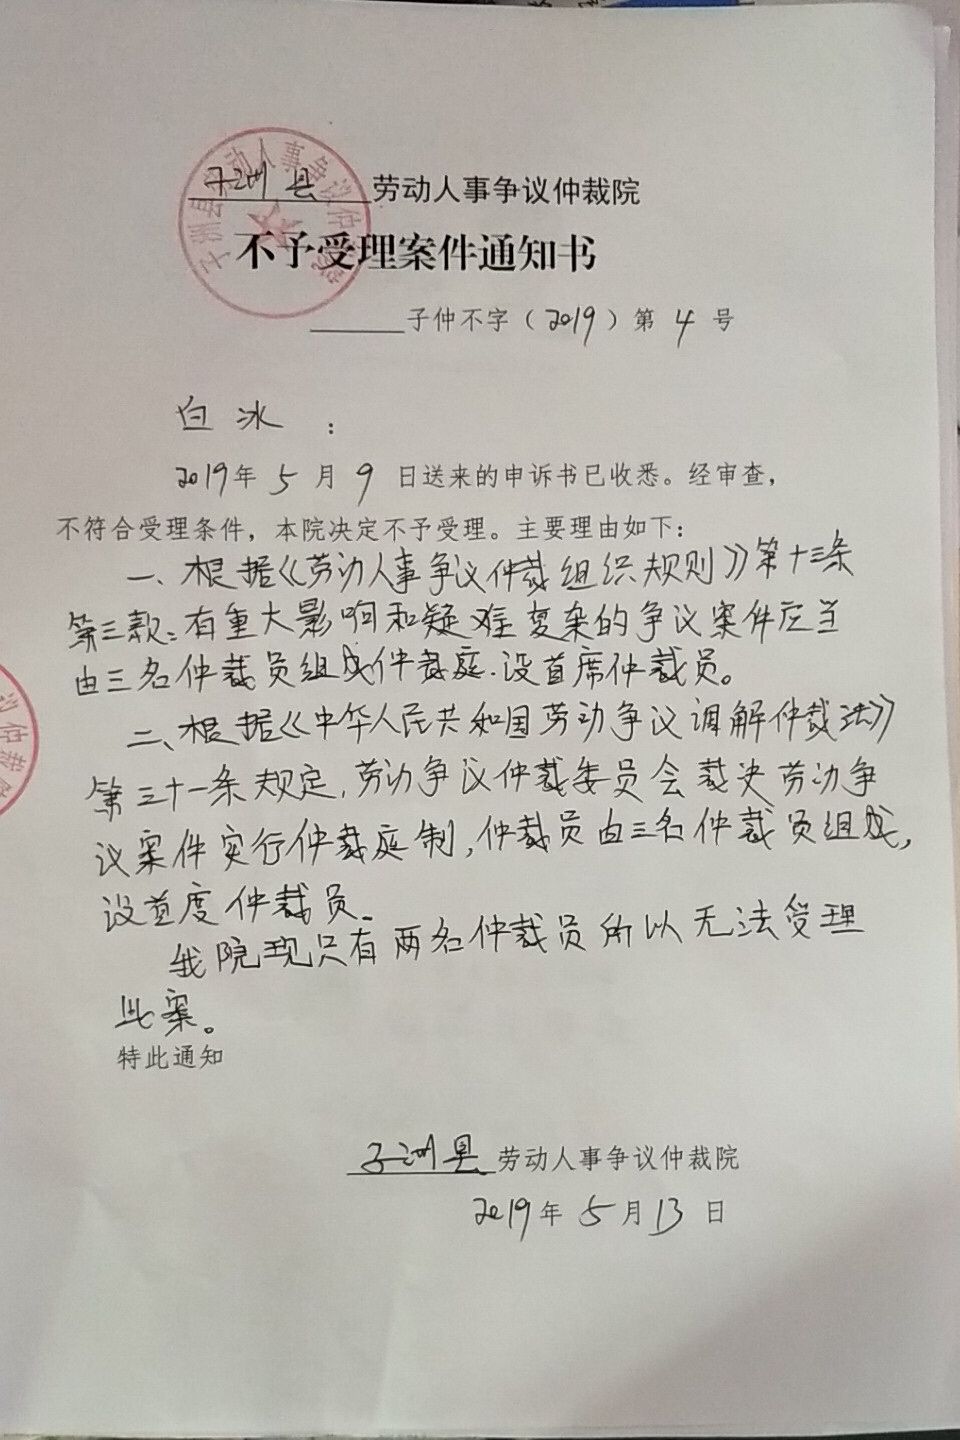 子洲县 劳动人事争议仲裁院
不予受理案件通知书
子仲不字（2019）第 4 号
白冰：
2019年 5 月 9 日送来的申诉书已收悉。经审查，
不符合受理条件，本院决定不予受理。主要理由如下：
一、根据《劳动人事争议仲裁组织规则》第十三条
第三款：有重大影响和疑难复杂的争议案件应当
由三名仲裁员组成仲裁庭.设首席仲裁员。
二、根据《中华人民共和国劳动争议调解仲裁法》
第三十一条规定,劳动争议仲裁委员会裁决劳动争
议案件实行仲裁庭制,仲裁员由三名仲裁员组成,
设首度仲裁员。
我院现只有两名仲裁员所以无法受理
此案。
特此通知
子洲县 劳动人事争议仲裁院
2019年 5 月 13 日
子洲县劳动人事争议仲裁院
议仲裁院